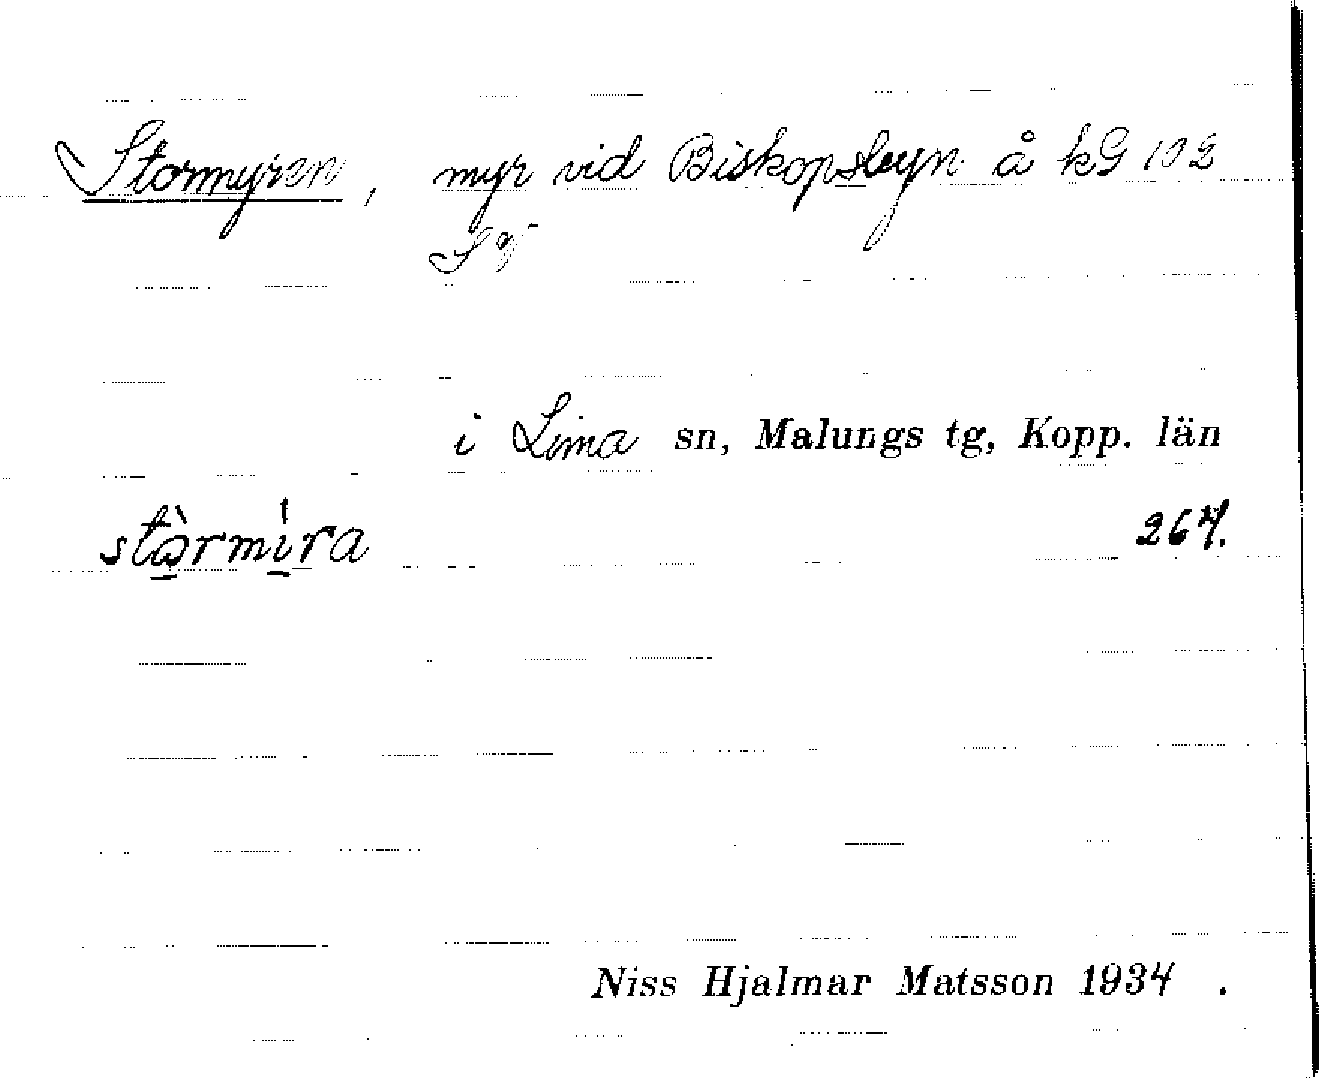 Stormyren, myr vid Biskopsbyn å kG 102
SV
i Lima sn, Malungs tg, Kopp. län
stòrmi̍ra 267.
Niss Hjalmar Matsson 1934 .